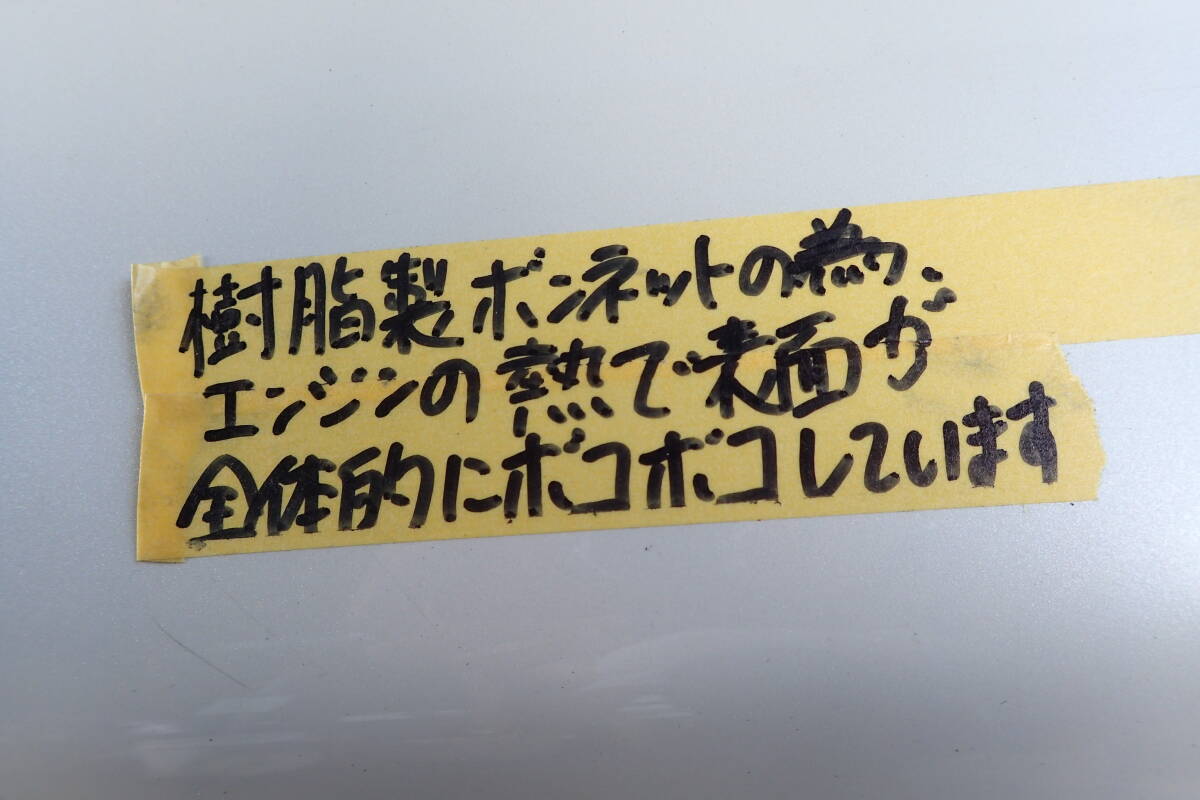 樹脂製ボンネットの為、
エンジンの熱で表面が
全体的にボコボコしています